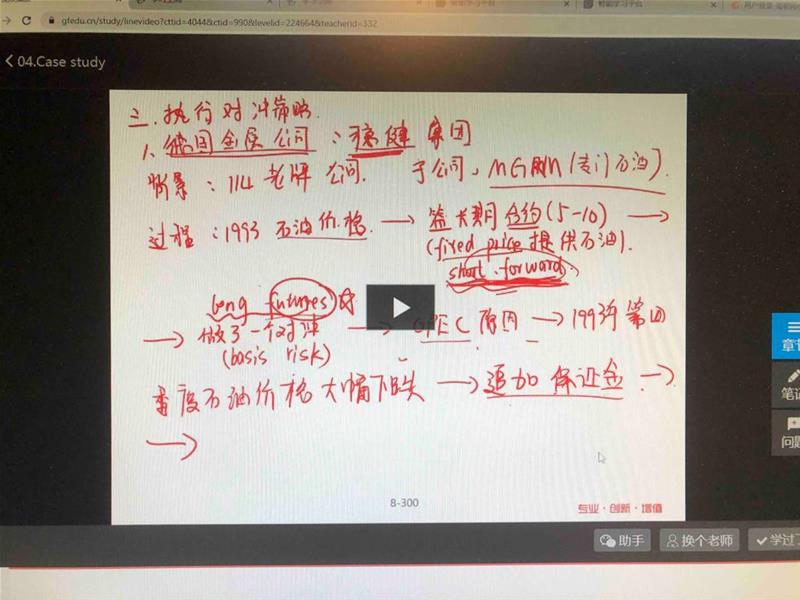 gfedu.cn/study/linevideo?cttid=4044&ctid=990&levelid=224664&teacherid=332
04.Case study
三.执行对冲策略
1、德国金属公司：稳健集团
背景：114老牌公司. 子公司、MGRM(专门石油).
过程：1993石油价格 → 签长期合约(5-10) →
(fixed price提供石油).
short forward.
long futures
→ 做了一个对冲 → OPEC原因 → 1993年第四
(basis risk)
季度石油价格大幅下跌 → 追加保证金 →
→
8-300
专业·创新·增值
助手
换个老师
学过了
章节
笔记
问题